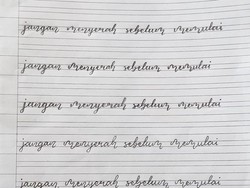 jangan menyerah sebelum memulai
jangan menyerah sebelum memulai
jangan menyerah sebelum memulai
jangan menyerah sebelum memulai
jangan menyerah sebelum memulai